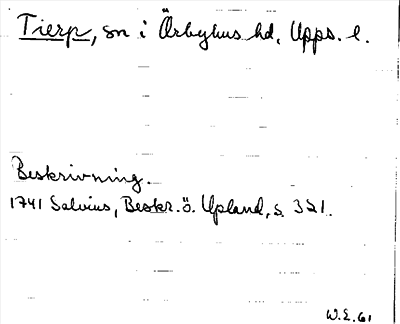 Tierp, sn i Örbyhus hd, Upps. l.
Beskrivning.
1741 Salvius, Beskr. ö. Upland, s. 321.
W.E. 61